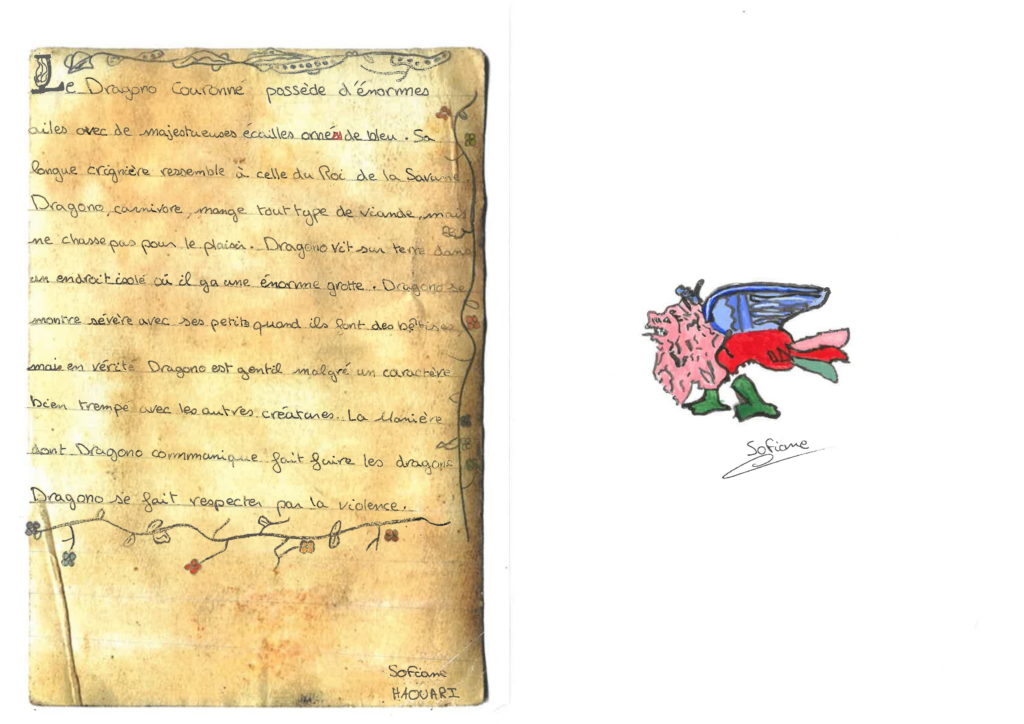 Le Dragono Couronné possède d'énormes
ailes avec de majestueuses écailles ornées de bleu. Sa
longue crignière ressemble à celle du Roi de la Savanne.
Dragono, carnivore, mange tout type de viande, mais
ne chasse pas pour le plaisir. Dragono vit sur terre dans
un endroit isolé où il y a une énorme grotte. Dragono se
montre sévère avec ses petits quand ils font des bêtises
mais en vérité Dragono est gentil malgré un caractère
bien trempe avec les autres créatures. La Manière
dont Dragono communique fait fuire les dragons
Dragono se fait respecter par la violence.
Sofiane
HAOUARI
Sofiane